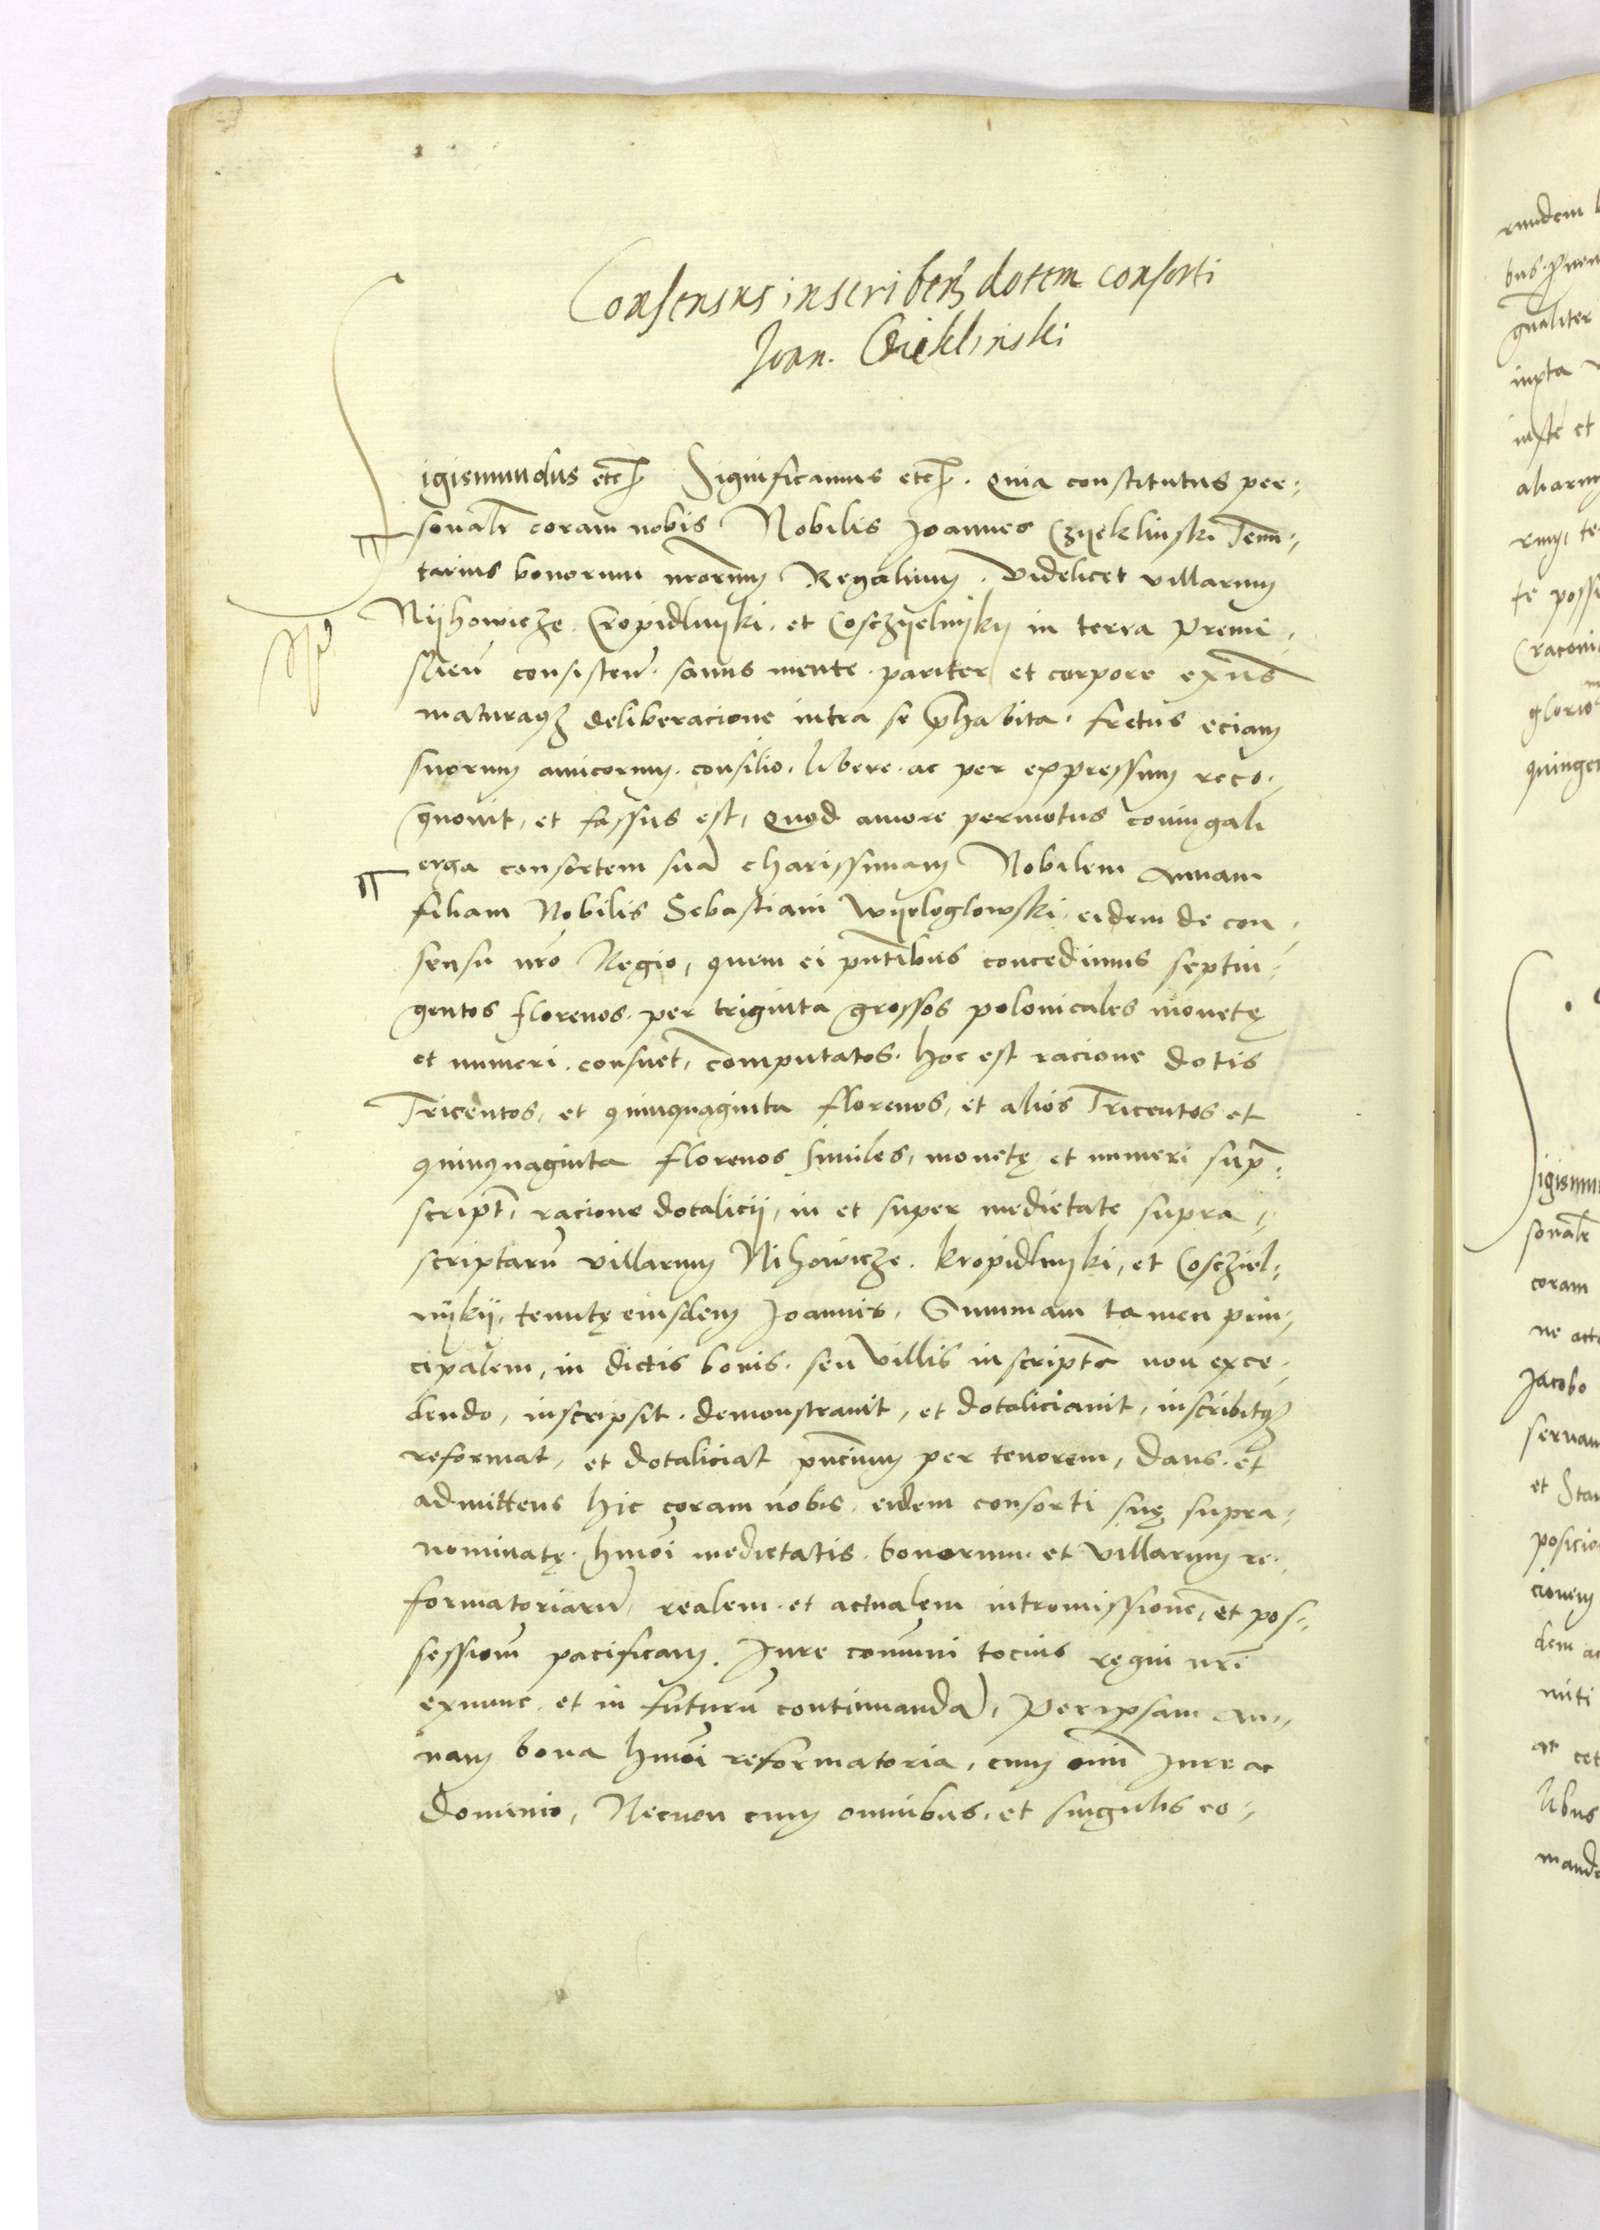 Consensus inscriben̄ dotem consorti
Joan. Cieklinski
Sigismundus etc̄ Significamus etc̄. Quia constitutus per-
sonalr̄ coram nobis Nobilis Joannes Czyeklinski Tenu-
tarius bonorum nr̄orum Regalium. Videlicet villarum
Nyhowicze Cropidlnyki et Cosczyelnyky in terra Premi-
slien̄ consisten̄ sanus mente pariter et corpore exn̄s
maturaq₃ deliberacione intra se p̄habita, fretus eciam
suorum amicorum consilio, libere ac per expressum reco-
gnovit, et fassus est, Quod amore permotus coniugali
erga consortem suā charissimam Nobilem Annam
filiam Nobilis Sebastiani Wyeloglowski eidem de con-
sensu nr̄o Regio, quem ei pn̄tibus concedimus septin-
gentos florenos per triginta grossos polonicales monetę
et numeri consuet̄, computatos. hoc est racione dotis
Tricentos, et quinquaginta florenos, et alios Tricentos et
quinquaginta florenos similes, monetę et numeri sup̄-
script̄, racione dotalicii, in et super medietate supra-
scriptarū villarum Nihowicze. Kropidlnyki, et Coscziel-
nykij, tenutę eiusdem Joannis, Summam tamen prin-
cipalem, in dictis bonis seu villis inscript̄ non exce-
dendo, inscripsit, demonstravit, et dotaliciavit, inscribitq₃
reformat, et dotaliciat pn̄cium per tenorem, dans et
admittens hic coram nobis, eidem consorti suę supra-
nominatę. hmōi medietatis bonorum et villarum re-
formatoriarū, realem et actualem intromissionē, et pos-
sessionem̄ pacificam. Jure com̄uni tocius regni nr̄i
exnunc et in futurū continuandā, per ipsam An-
nam bona hmōi reformatoria, cum om̄i Jure ac
dominio, Necnon cum omnibus et singulis eo-